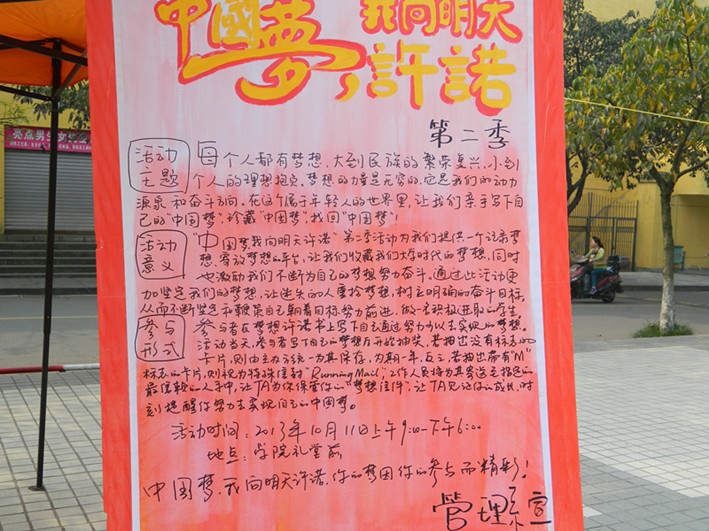 中國夢，我向明天許諾
第二季
活动主题
每个人都有梦想，大到民族的繁荣复兴，小到
个人的理想抱负，梦想的力量是无穷的，它是我们的动力
源泉和奋斗方向，在这个属于年轻人的世界里，让我们亲手写下自
己的“中国梦”，珍藏“中国梦”，找回“中国梦”！
活动意义
“中国梦我向明天许诺”第二季活动为我们提供一个记录梦
想、寄放梦想的平台，让我们收藏我们大学时代的梦想，同时
也激励我们不断为自己的梦想努力奋斗。通过此活动更
加坚定我们的梦想，让迷失的人重拾梦想，树立明确的奋斗目标，
从而不断坚定和鞭策自己朝着目标努力前进，做一名积极进取的学生
参与形式
参与者在梦想许诺书上写下自己通过努力可以去实现的梦想。
活动当天，参与者写下自己的梦想方开始抽奖，若抽出没有标志的
卡片，则由主办方统一为其保存，为期一年，反之，若抽出带有“M”
标志的卡片，则视为特殊信封“Running Mail”，工作人员将为其寄送去指定的
最信赖的人手中，让TA为你保管你的“梦想信件”，让TA见证你的成长，时
刻提醒你努力去实现自己的中国梦。
活动时间：2013年10月11日上午9:00-下午6:00
地点：学院礼堂前
中国梦，我向明天许诺，你的梦因你的参与而精彩！
管理系宣